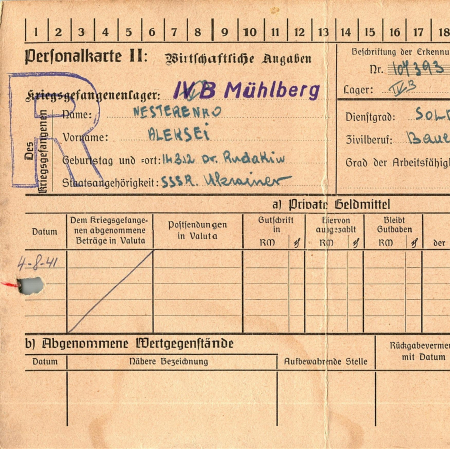 1 2 3 4 5 6 7 8 9 10 11 12 13 14 15 16 17 18
Personalkarte II: Wirtschaftliche Angaben
Beschriftung der Erkennu
Nr. 107393
Lager: IVB
Kriegsgefangenenlager: IVB Mühlberg
R
Des Kriegsgefangenen
Name: NESTERENKO
Vorname: ALEKSEI
Geburtstag und -ort: 14.3.12 Dr. Rudakiw
Staatsangehörigkeit: SSSR. Ukrainer
Dienstgrad: SOLD
Zivilberuf: Baue
Grad der Arbeitsfähig
a) Private Geldmittel
Datum
Dem Kriegsgefange-
nen abgenommene
Beträge in Valuta
Postsendungen
in Valuta
Gutschrift
in
RM
Hiervon
ausgezahlt
RM
Bleibt
Guthaben
RM
der
4-8-41
b) Abgenommene Wertgegenstände
Datum
Nähere Bezeichnung
Aufbewahrende Stelle
Rückgabeverme
mit Datum